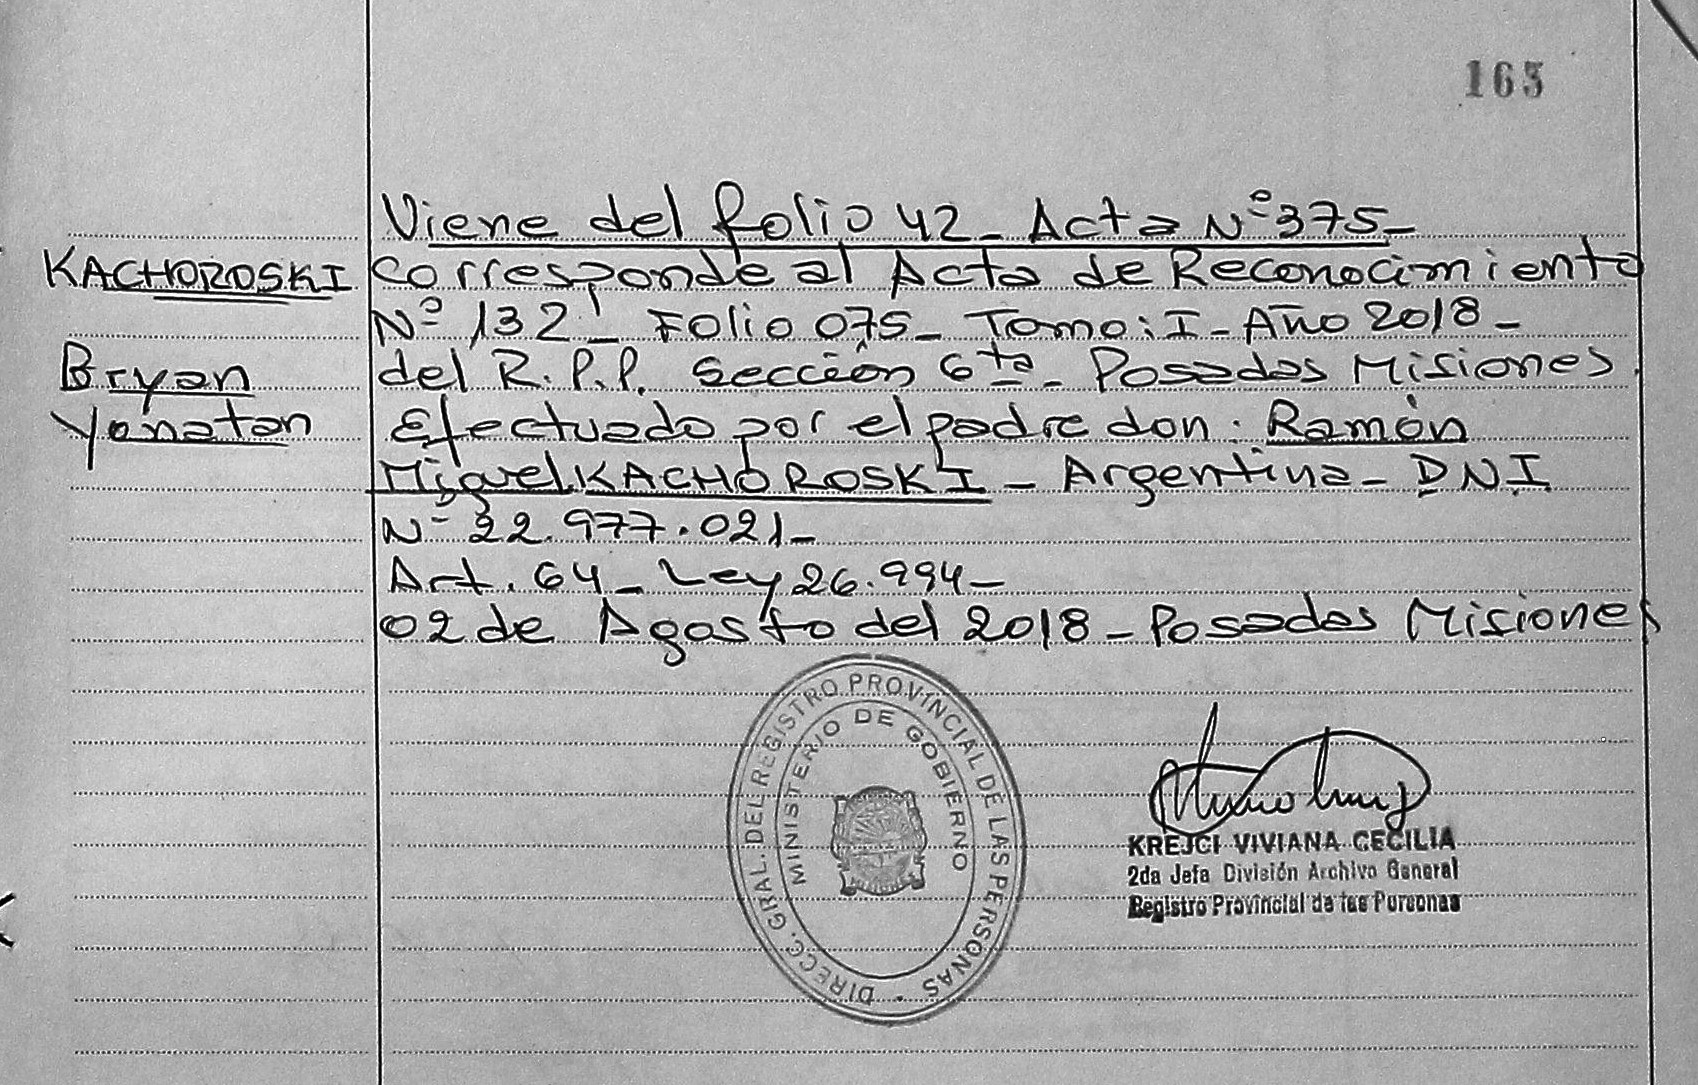 165
Viene del folio 42_ Acta Nº 375_
KACHOROSKI
corresponde al Acta de Reconocimiento
Nº 132_ Folio 075_ Tomo: I_ Año 2018_
Bryan
del R.P.P. Sección 6ta_ Posadas Misiones.
Yonatan
Efectuado por el padre don: Ramón
Miguel KACHOROSKI_ Argentina_ DNI
Nº 22.977.021_
Art. 64_ Ley 26.994_
02 de Agosto del 2018_ Posadas Misiones
DIRECC. GRAL. DEL REGISTRO PROVINCIAL DE LAS PERSONAS
MINISTERIO DE GOBIERNO
KREJCI VIVIANA CECILIA
2da Jefa División Archivo General
Registro Provincial de las Personas